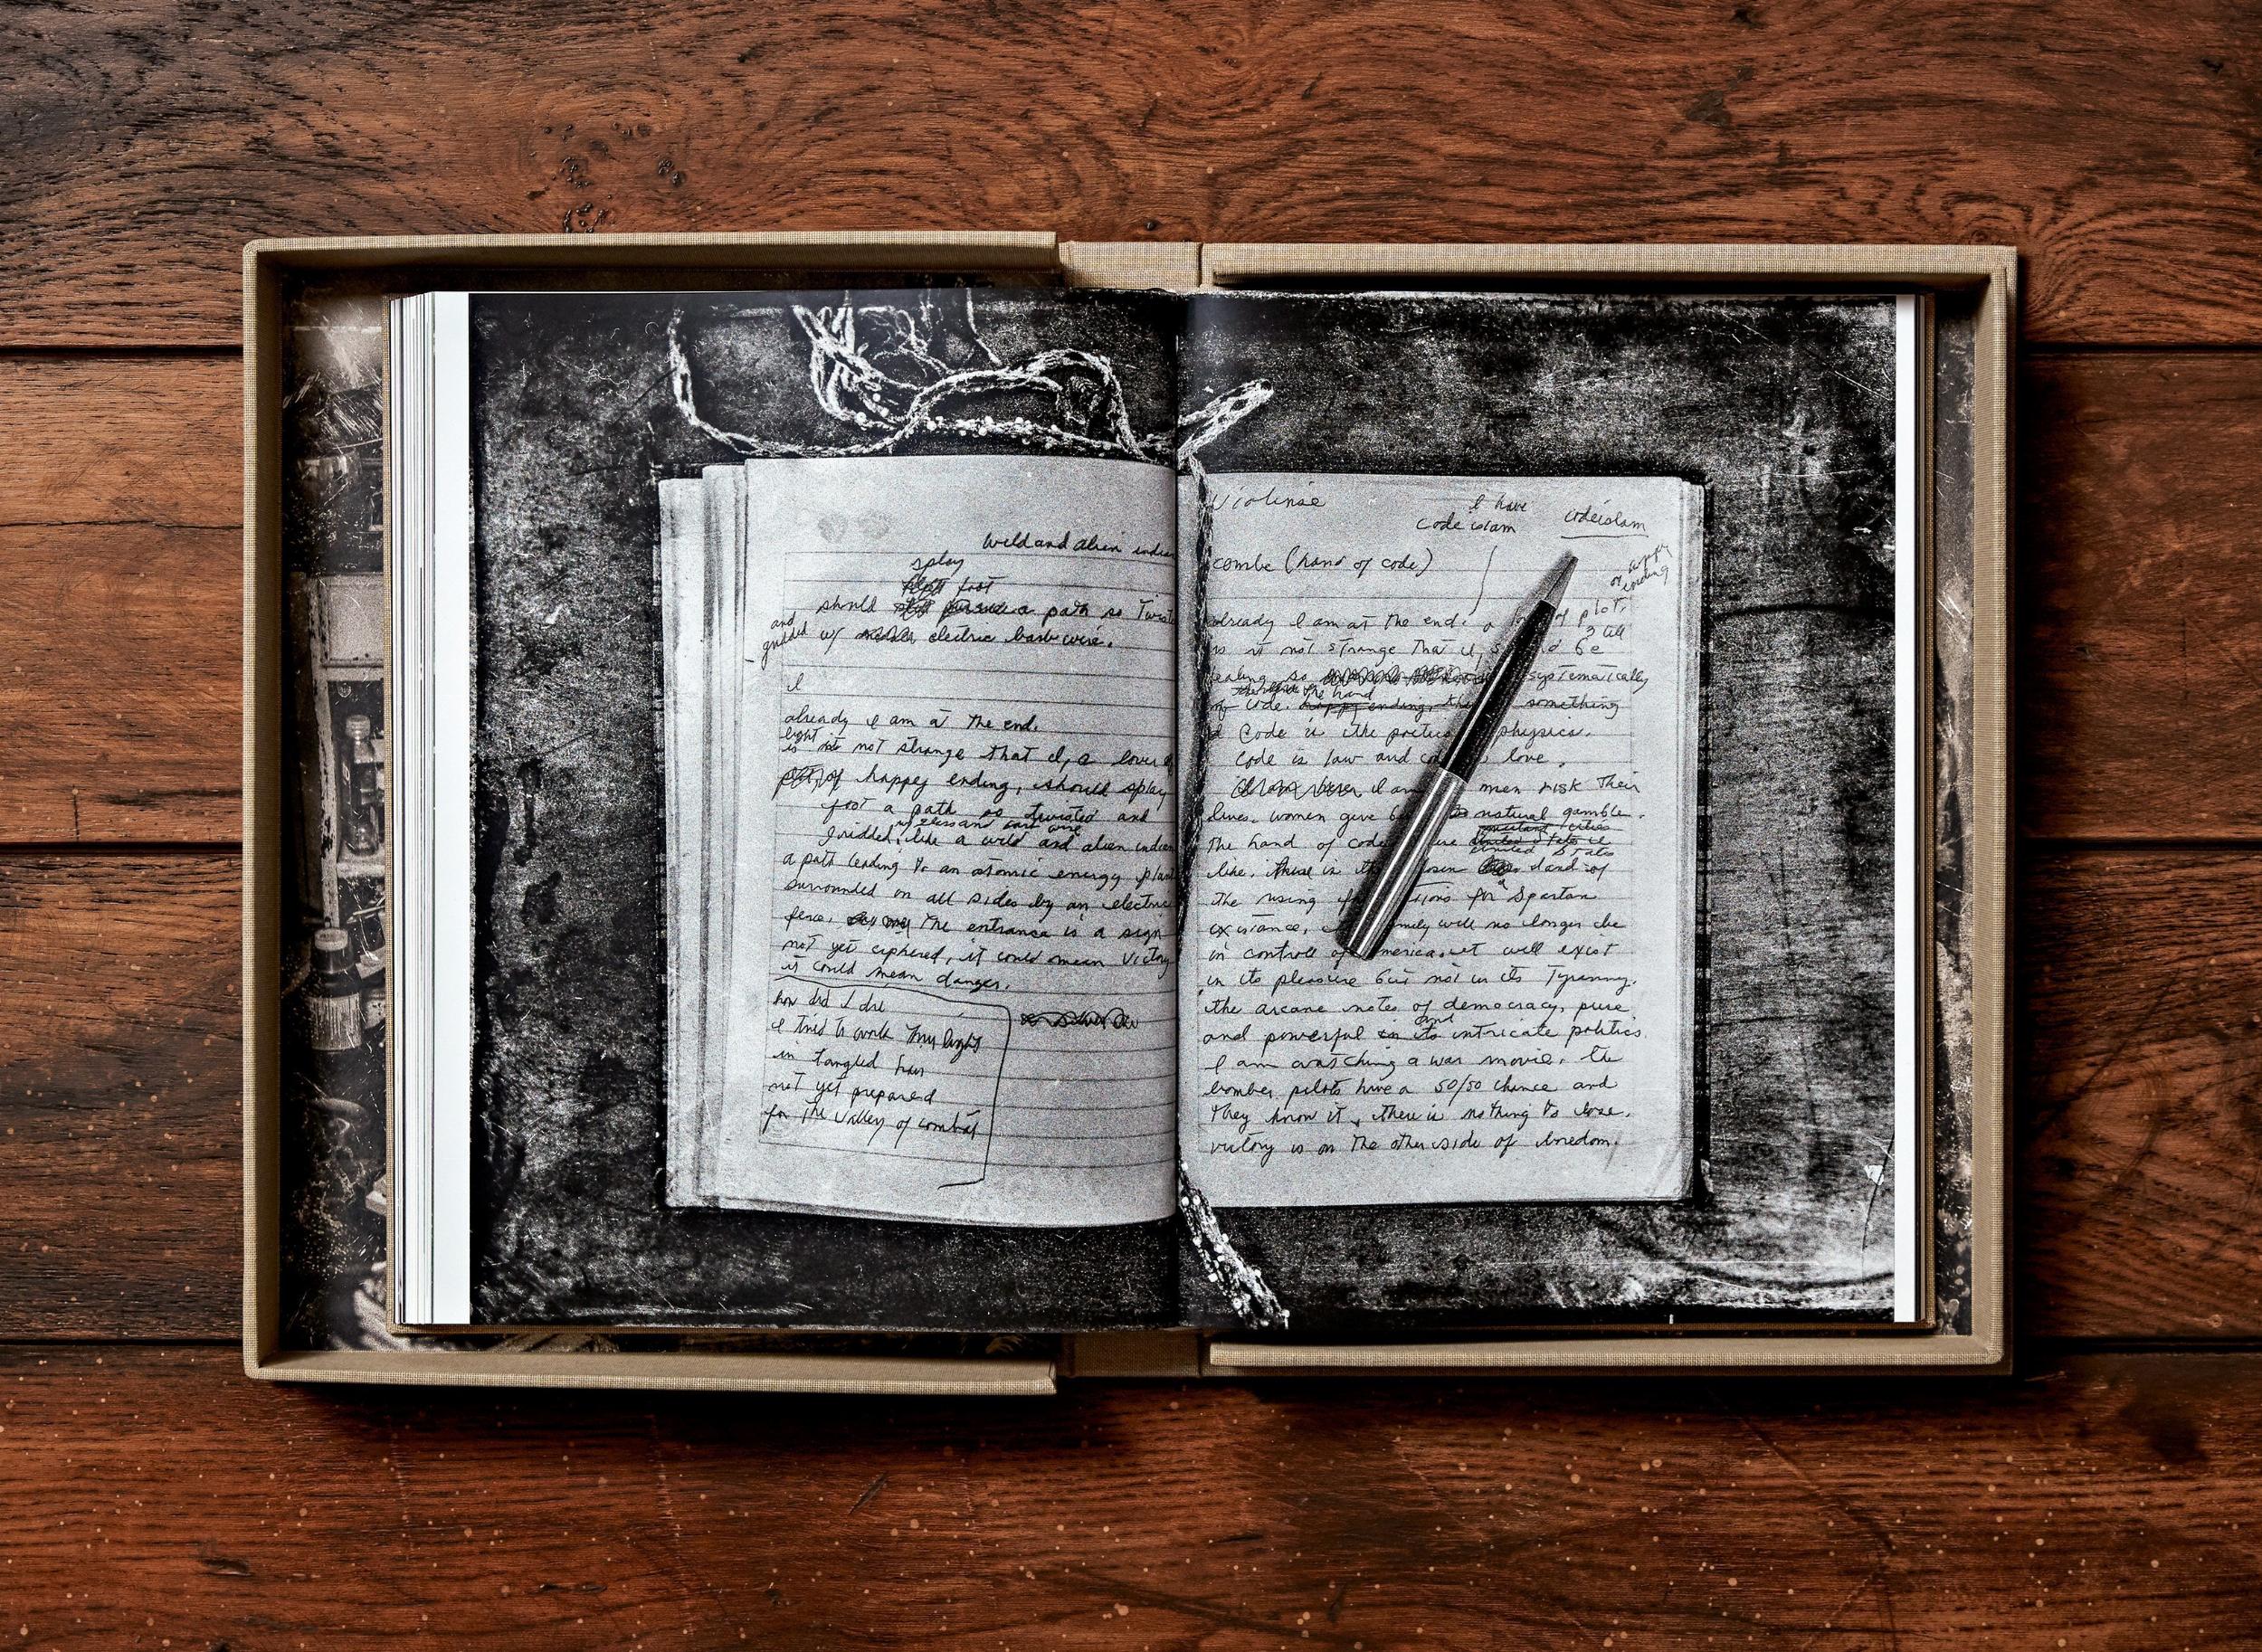 wild and alien indian
splay
foot
should pursue a path so twiste
and
gridded w/ electric barb wire.
I
already I am at the end.
is it not strange that I, a lover of
happy ending, should splay
foot a path so twisted and
gridded, like a wild and alien indian
a path leading to an atomic energy plant
surrounded on all sides by an electric
fence. the entrance is a sign
not yet ciphered, it could mean victory
it could mean danger.
how did I die
I tried to walk thru light
in tangled hair
not yet prepared
for the valley of combat
I have
code islam codeislam
combe (hand of code)
or happy
ending
already I am at the end. a of plot,
is it not strange that I, be
so systematically
the hand
of code. happy ending, something
Code is the poetics physics.
Code is law and love.
I am men risk their
lives. women give natural gamble.
the hand of code
United States
like. this is the hand of
the rising for a Spartan
existance. will no longer be
in controll of America. it will exist
in its pleasure but not in its Tyranny.
the arcane notes of democracy, pure
and
and powerful in its intricate politics.
I am watching a war movie. the
bomber pilots have a 50/50 chance and
they know it, there is nothing to lose.
victory is on the other side of boredom.